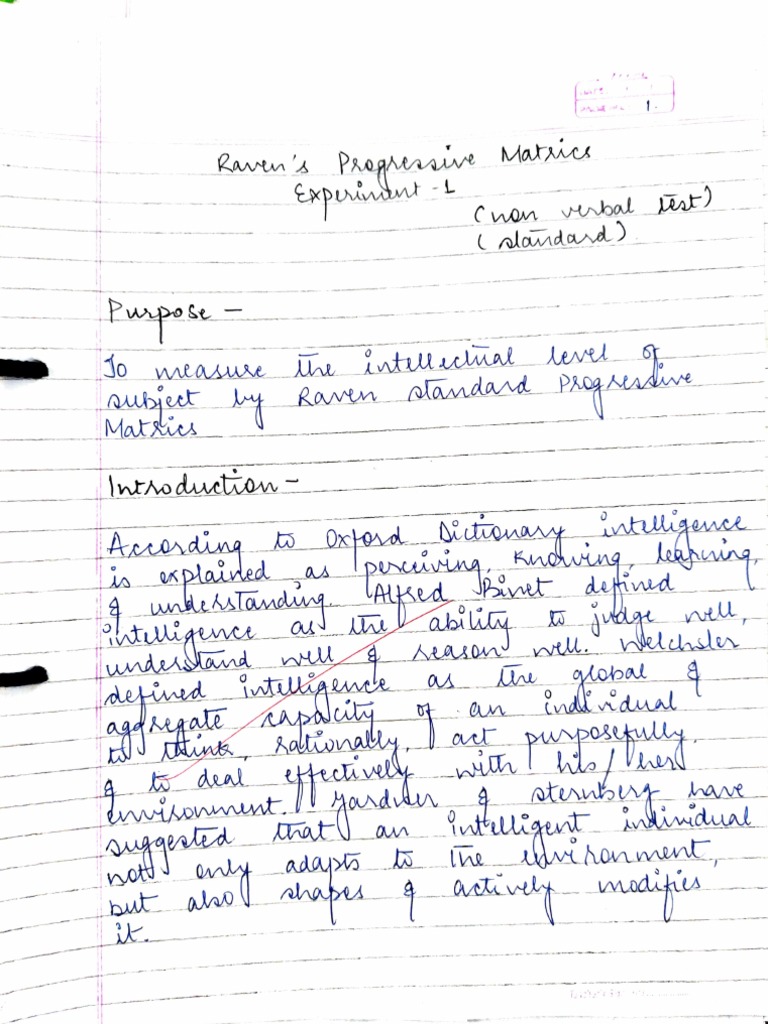 1.
Raven's Progressive Matrics
Experiment - 1
(non verbal test)
(standard)
Purpose -
To measure the intellectual level of
subject by Raven standard Progressive
Matrics
Introduction -
According to Oxford Dictionary intelligence
is explained as perceiving, knowing, learning,
& understanding. Alfred Binet defined
intelligence as the ability to judge well,
understand well & reason well. Welchsler
defined intelligence as the global &
aggregate capacity of an individual
to think, rationally, act purposefully.
& to deal effectively with his/her
environment. Gardner & sternberg have
suggested that an intelligent individual
not only adapts to the environment,
but also shapes & actively modifies
it.